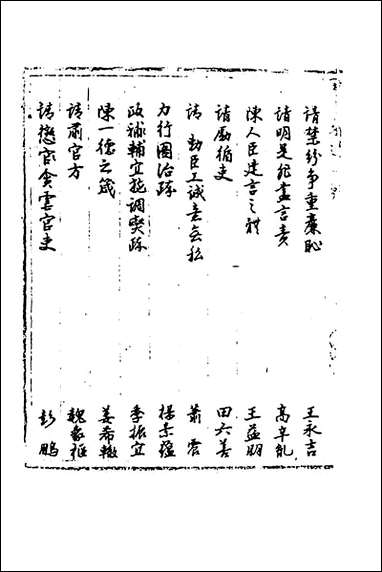 請禁紛爭重廉恥 王永吉
請明是非盡言責 高辛亂
陳人臣建言之體 王益朋
請勵循吏 田六善
請勅臣工誠意無私 蕭震
力行圖治疏 楊素蘊
政務輔宜調燮疏 季振宜
陳一德之箴 姜希轍
請肅官方 魏象樞
請懲官貪害吏 彭鵬